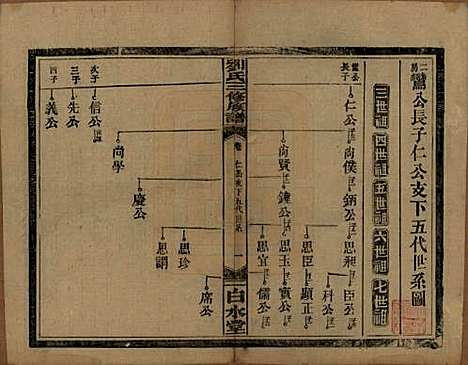 二房鸞公長子仁公支下五代世系圖
三世祖
四世祖
五世祖
六世祖
七世祖
鸞公長子
仁公
尚僕
鈵公
思昶
臣公
科公
思臣
顯正
尚賢
鐘公
思玉
賓公
思宜
儒公
劉氏三修族譜
卷
仁公支下五代世系
一
白水堂
尚學
慶公
思珍
席公
思調
次子
信公
三子
先公
四子
義公